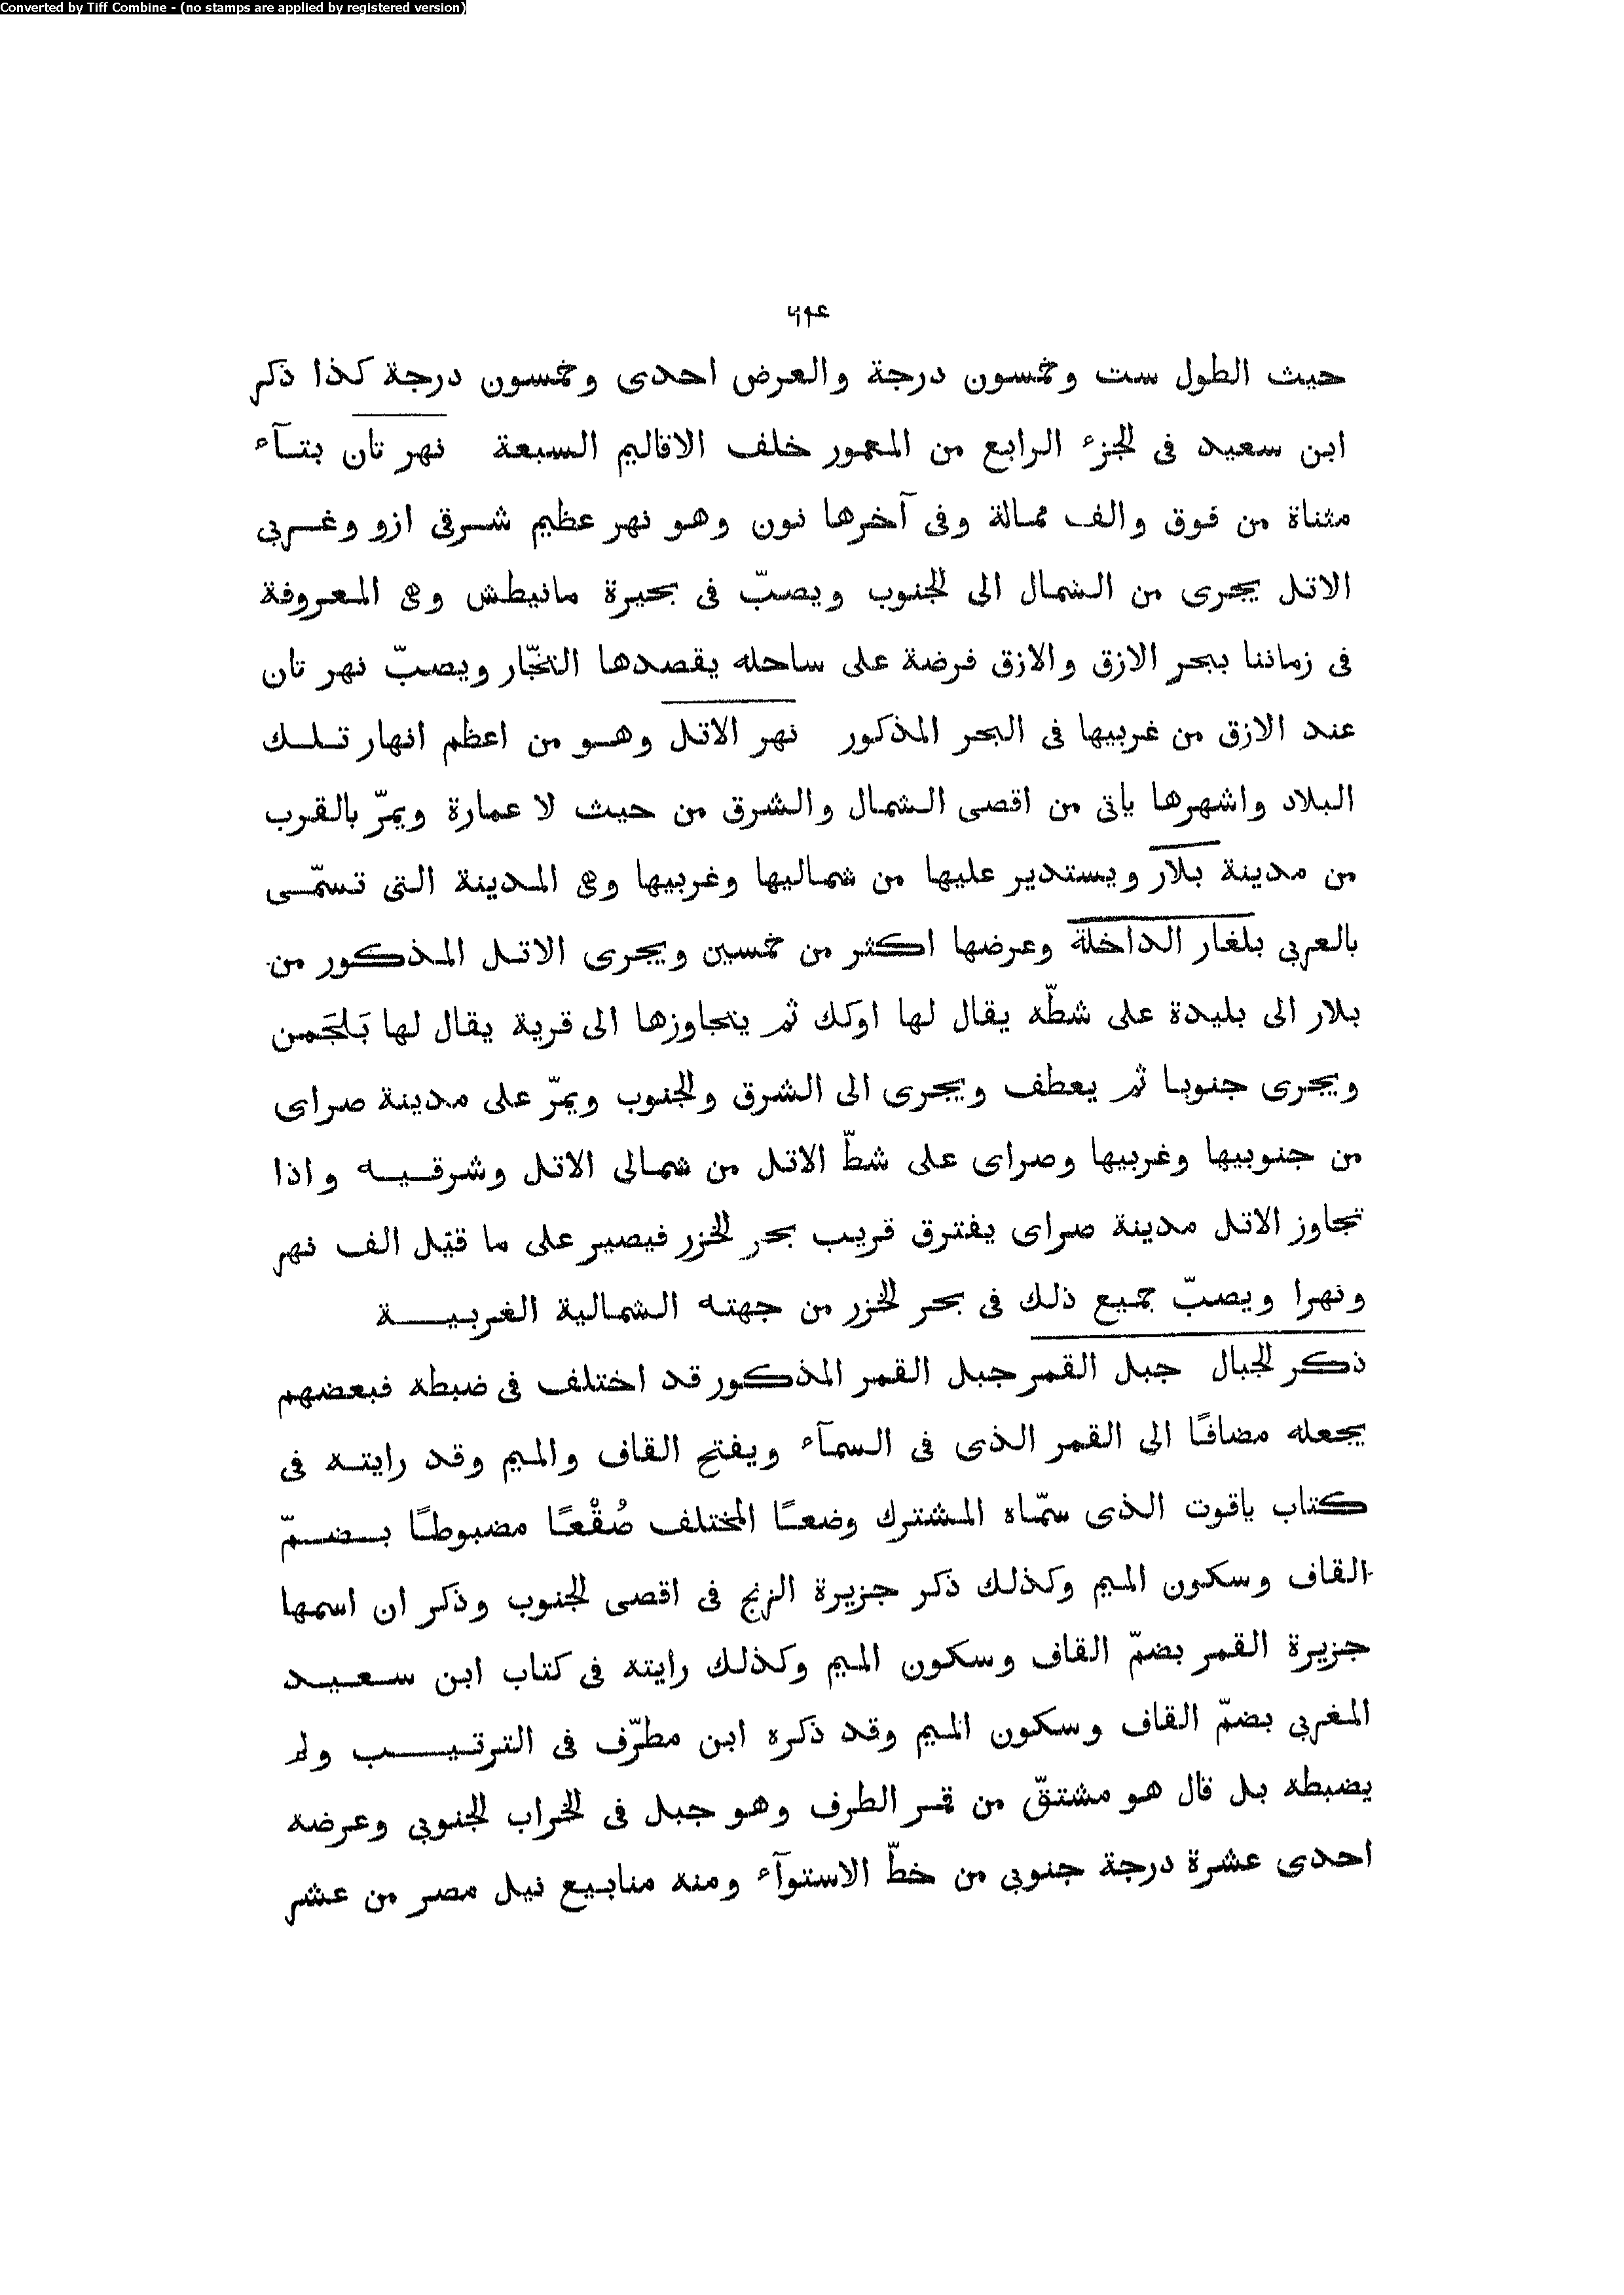 Converted by Tiff Combine - (no stamps are applied by registered version)
٦٤
حيث الطول ست وخمسون درجة والعرض احدى وخمسون درجة كذا ذكر
ابن سعيد فى الجزء الرابع من المعمور خلف الاقاليم السبعة نهر تان بتآء
مثناة من فوق والف ممالة وفى آخرها نون وهو نهر عظيم شرقى ازو وغربى
الاتل يجرى من الشمال الى الجنوب ويصبّ فى بحيرة مانيطش وهى المعروفة
فى زماننا ببحر الازق والازق فرضة على ساحله يقصدها التجّار ويصبّ نهر تان
عند الازق من غربيها فى البحر المذكور نهر الاتل وهو من اعظم انهار تلك
البلاد واشهرها ياتى من اقصى الشمال والشرق من حيث لا عمارة ويمرّ بالقرب
من مدينة بلار ويستدير عليها من شماليها وغربيها وهى المدينة التى تسمّى
بالعربى بلغار الداخلة وعرضها اكثر من خمسين ويجرى الاتل المذكور من
بلار الى بليدة على شطّه يقال لها اوكك ثم يتجاوزها الى قرية يقال لها بَلجَمن
ويجرى جنوبا ثم يعطف ويجرى الى الشرق والجنوب ويمرّ على مدينة صراى
من جنوبيها وغربيها وصراى على شطّ الاتل من شمالى الاتل وشرقيه واذا
تجاوز الاتل مدينة صراى يفترق قريب بحر الخزر فيصير على ما قيّل الف نهر
ونهرا ويصبّ جميع ذلك فى بحر الخزر من جهته الشمالية الغربية
ذكر الجبال جبل القمر جبل القمر المذكور قد اختلف فى ضبطه فبعضهم
يجعله مضافًا الى القمر الذى فى السمآء ويفتح القاف والميم وقد رايته فى
كتاب ياقوت الذى سمّاه المشترك وضعًا المختلف صُقْعًا مضبوطًا بضمّ
القاف وسكون الميم وكذلك ذكر جزيرة الزنج فى اقصى الجنوب وذكر ان اسمها
جزيرة القمر بضمّ القاف وسكون الميم وكذلك رايته فى كتاب ابن سعيد
المغربى بضمّ القاف وسكون الميم وقد ذكره ابن مطرّف فى الترتيب ولم
يضبطه بل قال هو مشتقّ من قمر الطرف وهو جبل فى الخراب الجنوبى وعرضه
احدى عشرة درجة جنوبى من خطّ الاستوآء ومنه منابيع نيل مصر من عشر